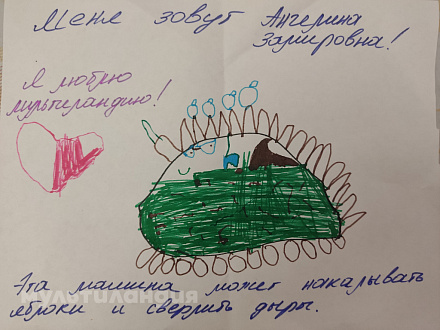 Меня зовут Ангерина
Замировна!
Я люблю
мультиландию!
Эта машина может накалывать
яблоки и сверлить дыры.
МУЛЬТИЛАНДИЯ